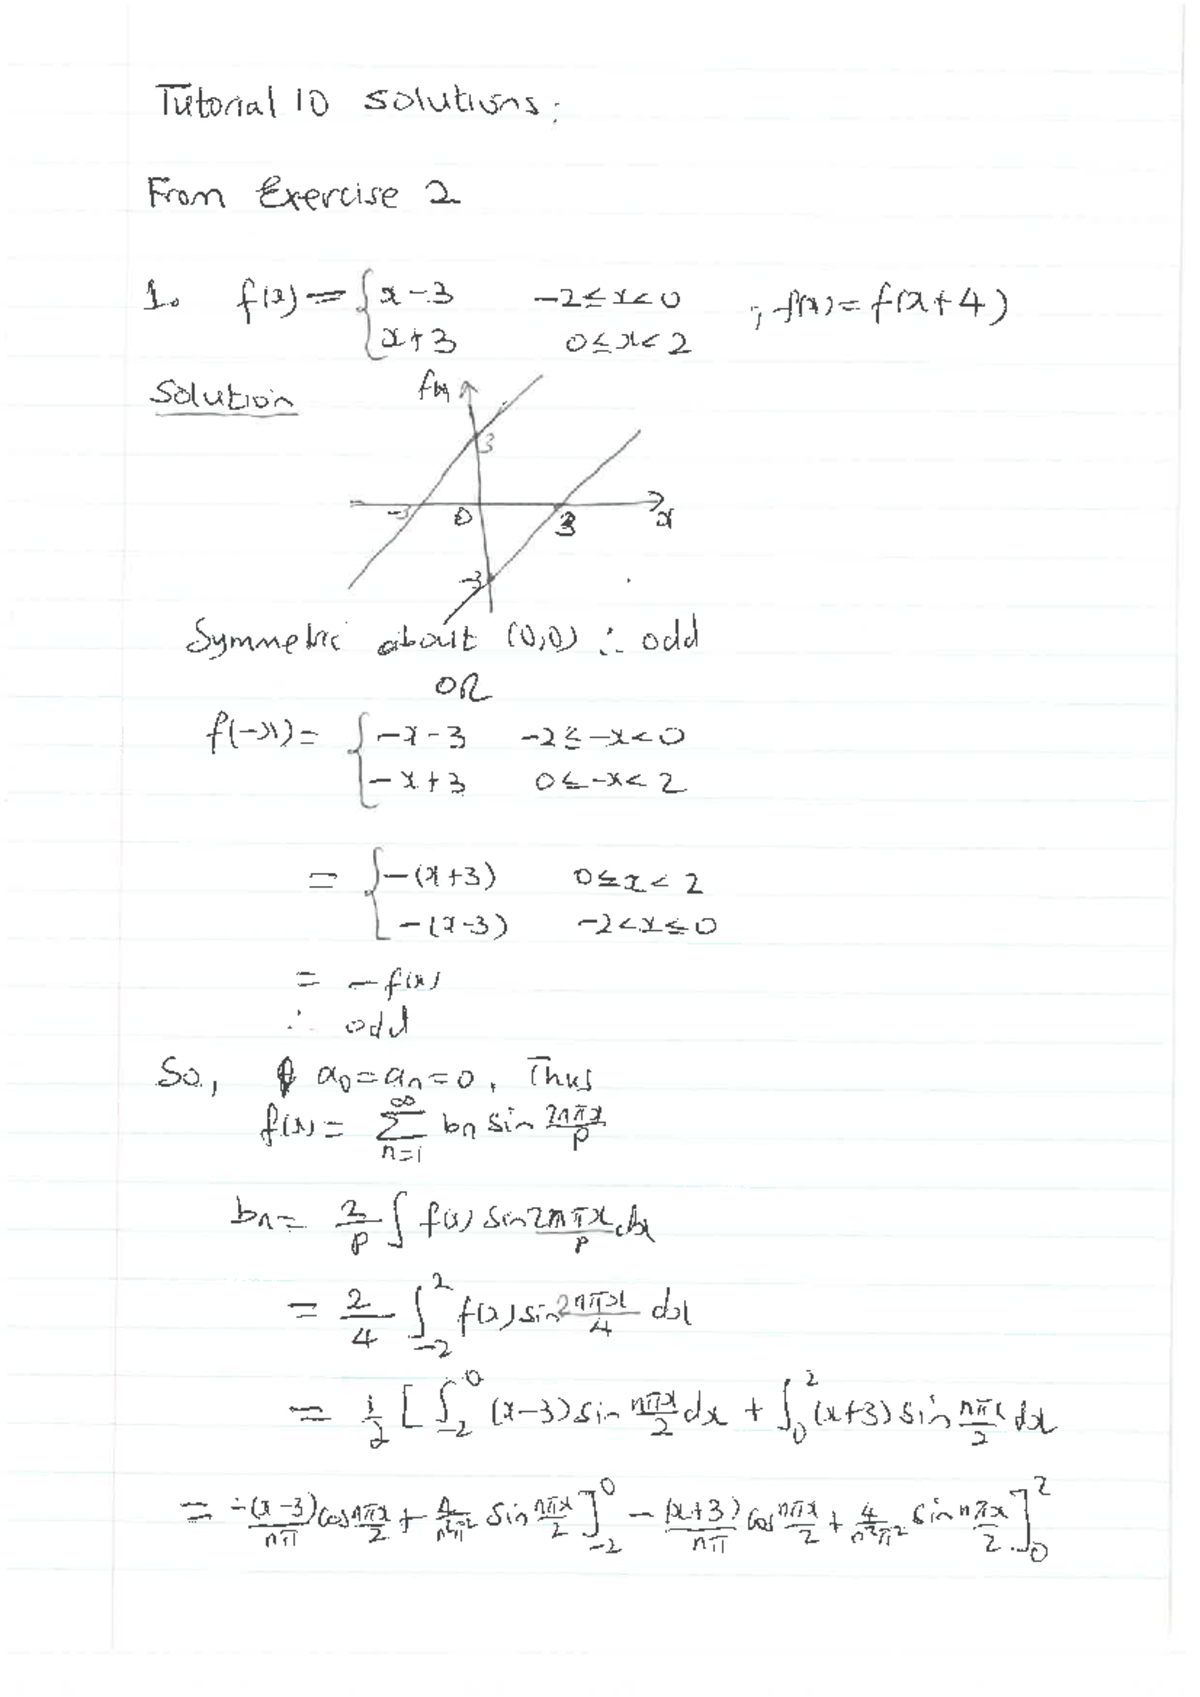 Tutorial 10 solutions:
From Exercise 2
1. f(x) = { x-3   -2≤x<0   ; f(x) = f(x+4)
x+3   0≤x<2
Solution
f(x)
3
-3   0   3   x
-3
Symmetric about (0,0) ∴ odd
OR
f(-x) = { -x-3   -2≤-x<0
-x+3   0≤-x<2
= { -(x+3)   0≤x<2
-(x-3)   -2<x≤0
= -f(x)
∴ odd
So, a₀=aₙ=0, Thus
f(x) = ∑_{n=1}^{∞} bn sin 2nπx/p
bn = 2/p ∫ f(x) sin 2nπx/p dx
= 2/4 ∫_{-2}^{2} f(x) sin 2nπx/4 dx
= 1/2 [ ∫_{-2}^{0} (x-3) sin nπx/2 dx + ∫_{0}^{2} (x+3) sin nπx/2 dx
= -(x-3)/nπ cos nπx/2 + 4/n²π² sin nπx/2 ]_{-2}^{0} - (x+3)/nπ cos nπx/2 + 4/n²π² sin nπx/2 ]_{0}^{2}